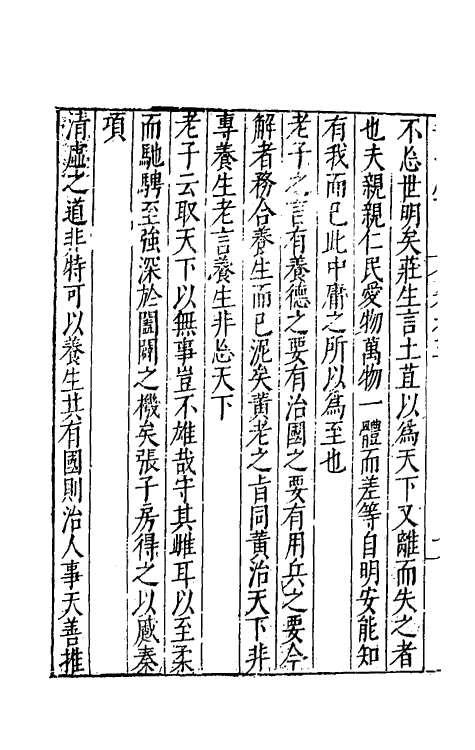 不忘世明矣莊生言土苴以為天下又離而失之者
也夫親親仁民愛物萬物一體而差等自明安能知
有我而已此中庸之所以為至也
老子之言有養德之要有治國之要有用兵之要今
解者務合養生而已泥矣黃老之旨同黃治天下非
專養生老言養生非忘天下
老子云取天下以無事豈不雄哉守其雌耳以至柔
而馳騁至強深於闔闢之機矣張子房得之以蹙秦
項
清虛之道非特可以養生其有國則治人事天善推